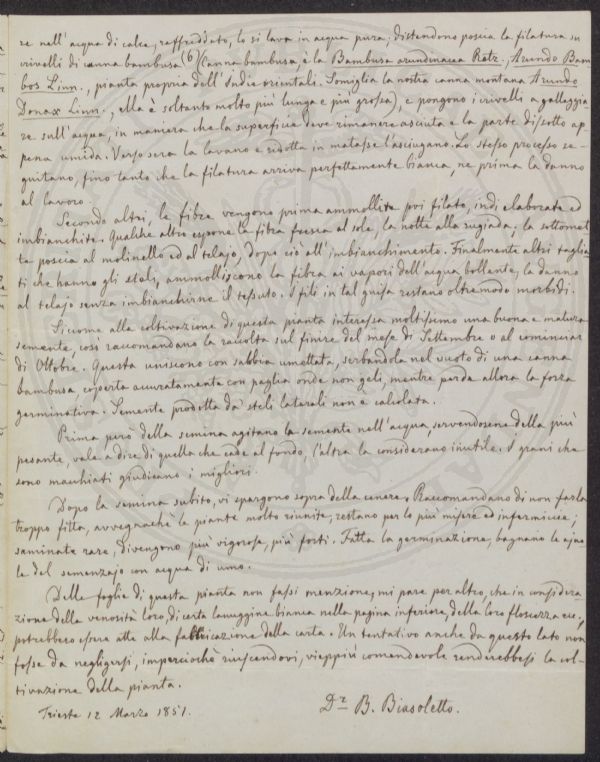 re nell'acqua di calce, raffreddato, lo si lava in acqua pura; distendono poscia la filatura su
crivelli di canna bambusa (6) (Canna bambusa, è la Bambusa arundinacea Retz., Arundo Bam
bos Linn., pianta propria dell'Indie orientali. Somiglia la nostra canna montana Arundo
Donax Linn., ella è soltanto molto più lunga e più grossa), e pongono i crivelli a galleggia-
re sull'acqua, in maniera che la superficie deve rimanere asciuta e la parte disotto ap
pena umida. Verso sera la lavano e ridotta in matasse l'asciugano. Lo stesso processo se-
guitano, fino tanto che la filatura arriva perfettamente bianca, ne prima la danno
al lavoro.
Secondo altri, le fibre vengono prima ammollite poi filate, indi elaborate ed
imbianchite. Qualche altro espone la fibra fresca al sole, la notte alla rugiada; la sottomet
te poscia al molinello ed al telajo, dopo ciò all'imbianchimento. Finalmente altri taglia
ti che hanno gli steli, ammolliscono la fibra ai vapori dell'acqua bollente, la danno
al telajo senza imbianchirne il tessuto. I fili in tal guisa restano oltremodo morbidi.
Siccome alla coltivazione di questa pianta interessa moltissimo una buona e matura
semente, così raccomandano la raccolta sul finire del mese di Settembre o al cominciar
di Ottobre. Questa uniscono con sabbia umettata, serbandola nel vuoto di una canna
bambusa, coperta accuratamente con paglia onde non geli, mentre perde allora la forza
germinativa. Semente prodotta da steli laterali non è calcolata.
Prima però della semina agitano la semente nell'acqua, servendosene della più
pesante, vale a dire di quella che cade al fondo, l'altra la considerano inutile. I grani che
sono macchiati giudicano i migliori.
Dopo la semina subito, vi spargono sopra della cenere. Raccomandano di non farla
troppo fitta, avvegnachè le piante molto riunite, restano per lo più misere ed infermiccie;
seminate rare, divengono più vigorose, più forti. Fatta la germinazione, bagnano le ajuo-
le del semenzajo con acqua di
Delle foglie di questa pianta non fassi menzione, mi pare per altro, che in considera
zione della venosità loro, di certa lanuggine bianca nella pagina inferiore, della loro floscezza ec.,
potrebbero essere atte alla fabbricazione della carta. Un tentativo anche da questo lato non
fosse da negligersi, imperciochè riuscendovi, vieppiù comendevole renderebbesi la col-
tivazione della pianta.
Trieste 12 Marzo 1851.
Dr. B. Biasoletto.